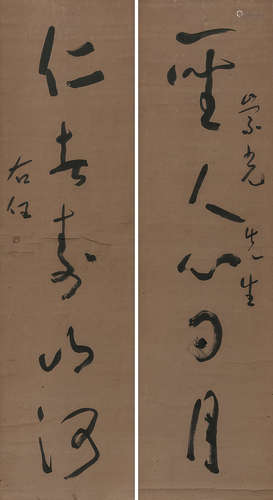 聖人心日月
崇光先生
仁者壽山河
右任